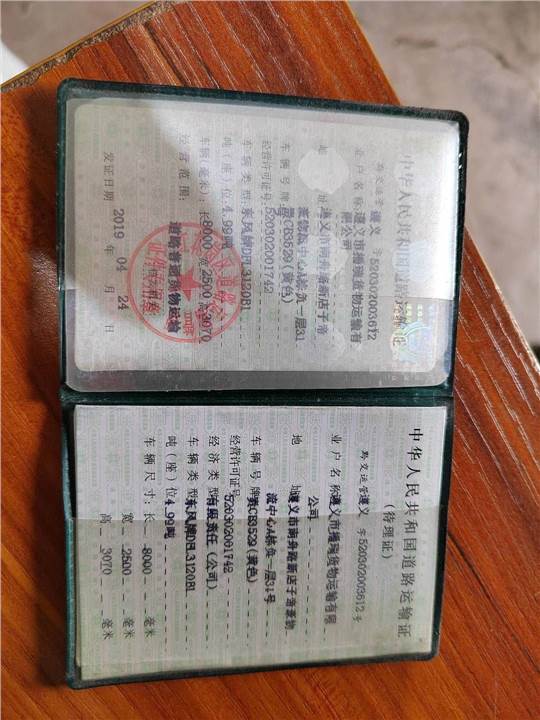 中华人民共和国道路运输证
黔交运管 遵义 字520302003612
业户名称 遵义市播瑞货物运输有
限公司
址 遵义市南舟路新店子港
流中心A栋负一层31
车辆号牌 贵CB3529(黄色)
经营许可证号 520302001742
车辆类型 东风牌DFL3120B1
吨(座)位 4.99吨
车辆(毫米) 长8000 宽2500 3070
经营范围: 道路普通货物运输
发证日期 2019 年 04 月 24 日
中华人民共和国道路运输证
(待理证)
黔交运管 遵义 字520302003612号
业户名称 遵义市播瑞货物运输有限
公司
地址 遵义市南舟路新店子港豪物
流中心A栋负一层31号
车辆号牌 贵CB3529(黄色)
经营许可证号 520302001742
经济类型 有限责任(公司)
车辆类型 东风牌DFL3120B1
吨(座)位 4.99吨
车辆尺寸:长 8000 毫米
宽 2500 毫米
高 3070 毫米